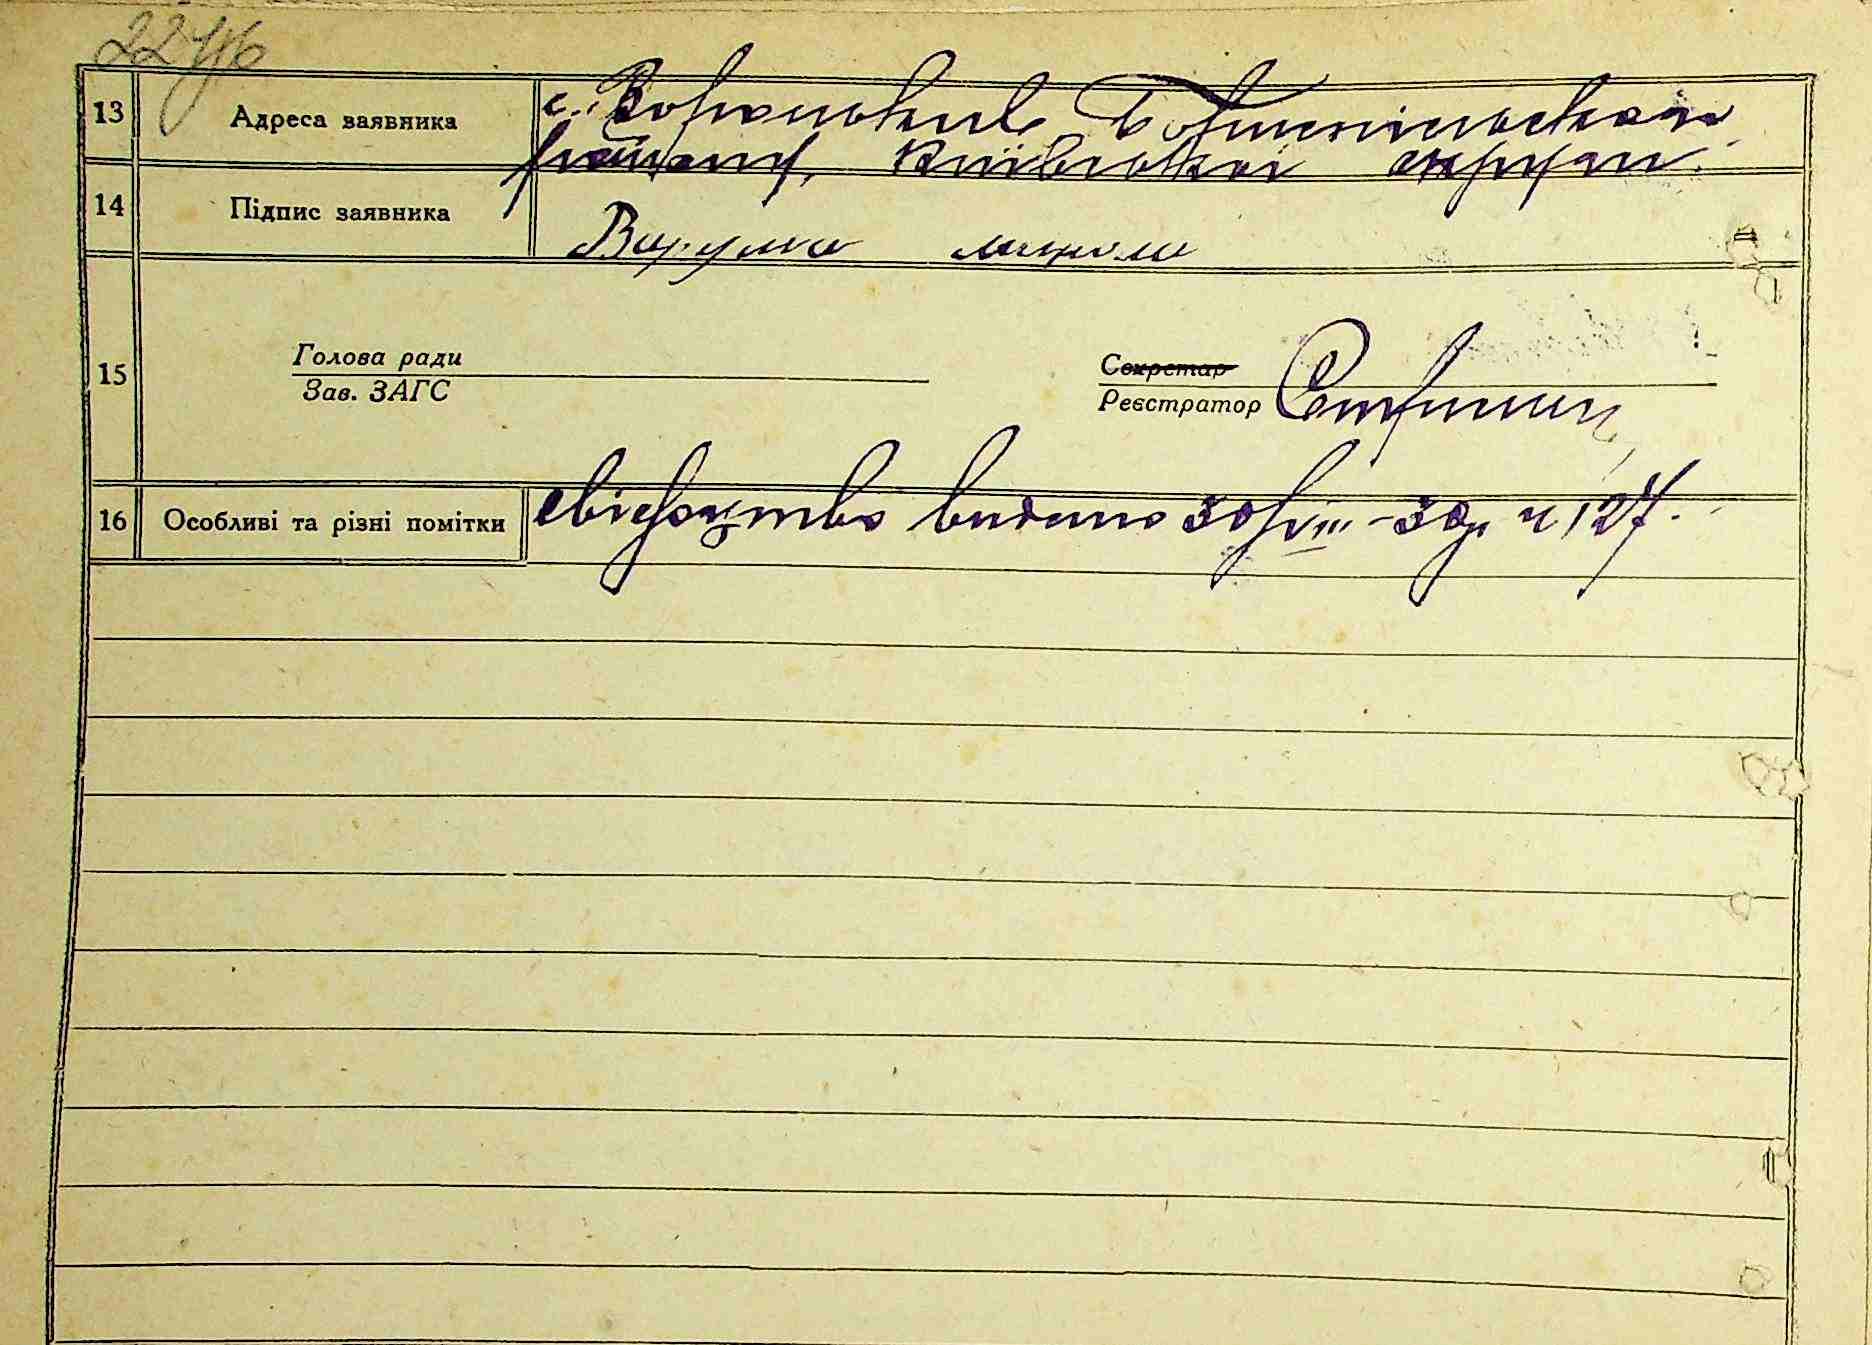 13 Адреса заявника с. Вороньків Бориспільського
району, Київської округи.
14 Підпис заявника
15 Голова ради
Зав. ЗАГС
Секретар
Реєстратор
16 Особливі та різні помітки свідоцтво видано 30/VIII-30р. ч 127.